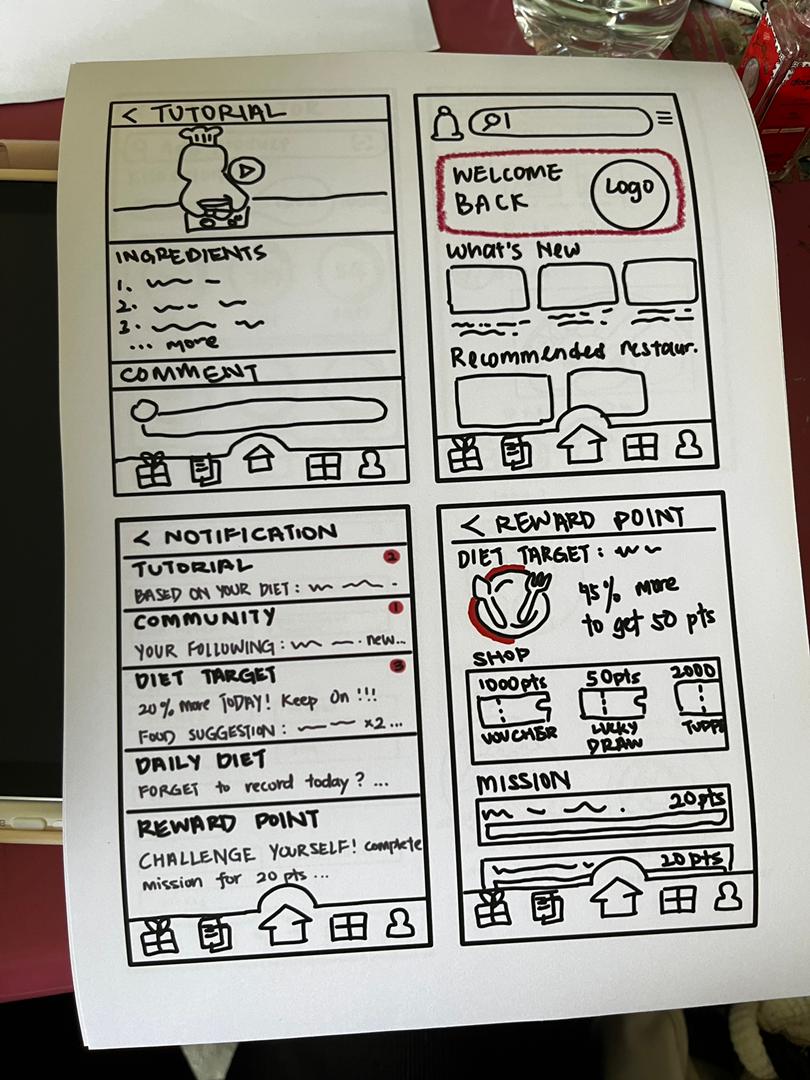 < TUTORIAL
INGREDIENTS
1.
2.
3.
... more
COMMENT
WELCOME
BACK
Logo
What's New
Recommended restaur.
< NOTIFICATION
TUTORIAL
2
BASED ON YOUR DIET :
COMMUNITY
1
YOUR FOLLOWING : new...
DIET TARGET
3
20% more TODAY! Keep On !!!
FOOD SUGGESTION : x2 ...
DAILY DIET
FORGET to record today ? ...
REWARD POINT
CHALLENGE YOURSELF! complete
mission for 20 pts ...
< REWARD POINT
DIET TARGET :
45% more
to get 50 pts
SHOP
1000pts
VOUCHER
50pts
LUCKY
DRAW
2000
TUPP
MISSION
20pts
20pts